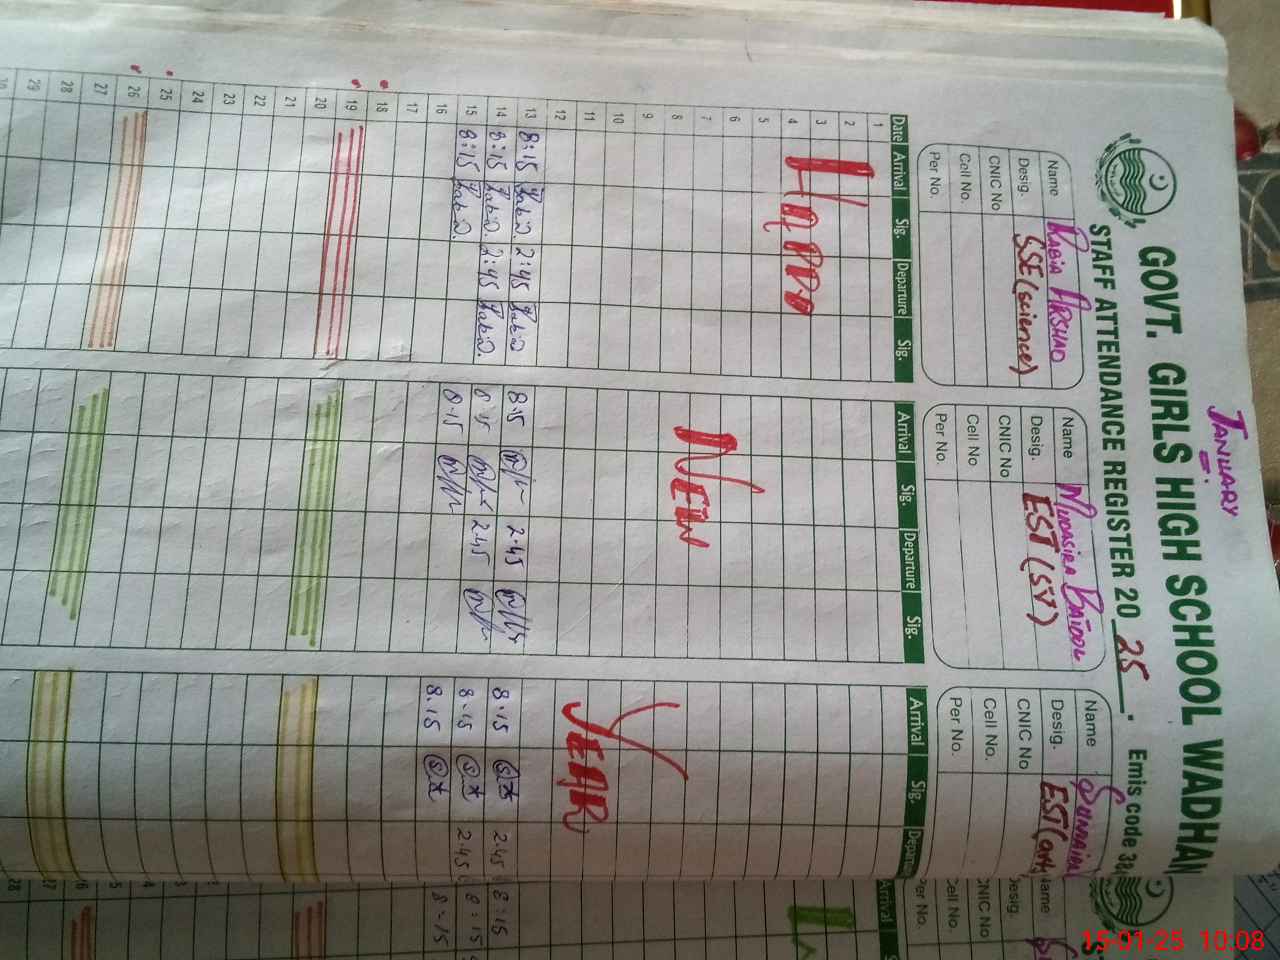 JANUARY
GOVT. GIRLS HIGH SCHOOL WADHAN
STAFF ATTENDANCE REGISTER 20 25. Emis code 38
Name RABIA ARSHAD
Desig. SSE(science)
CNIC No
Cell No.
Per No.
Name MUDASIRA BATOOL
Desig. EST (SV)
CNIC No
Cell No
Per No.
Name
Desig. EST(
CNIC No
Cell No.
Per No.
Date Arrival Sig. Departure Sig. Arrival Sig. Departure Sig. Arrival Sig. Departure
1
2
3
4 HAPPY
5
6
7
8 NEW
9
10
11
12 YEAR
13 8:15 2:45 8.15 2.45 8.15 2.45 8:15
14 8:15 2:45 8.15 2.45 8.15 2.45 8:15
15 8:15 8.15 8.15 8.15
16
17
18
19
20
21
22
23
24
25
26
27
28
29
15-01-25 10:08